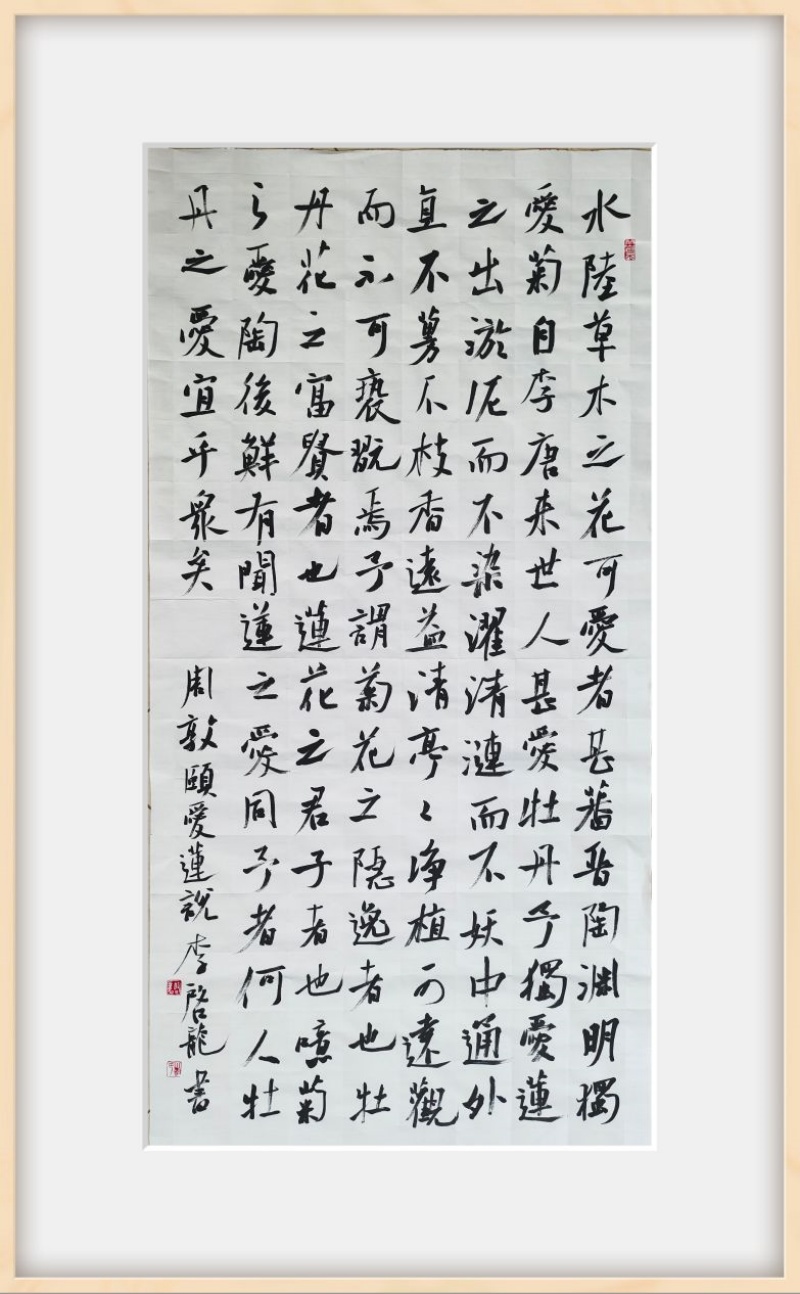 水陸草木之花可愛者甚蕃晋陶渊明獨
愛菊自李唐来世人甚愛牡丹予獨愛蓮
之出淤泥而不染濯清漣而不妖中通外
直不蔓不枝香遠益清亭〻净植可遠觀
而不可褻翫焉予謂菊花之隐逸者也牡
丹花之富賢者也蓮花之君子者也噫菊
之愛陶後鮮有聞蓮之愛同予者何人牡
丹之愛宜乎衆矣 周敦頤愛蓮説 李啓龍書